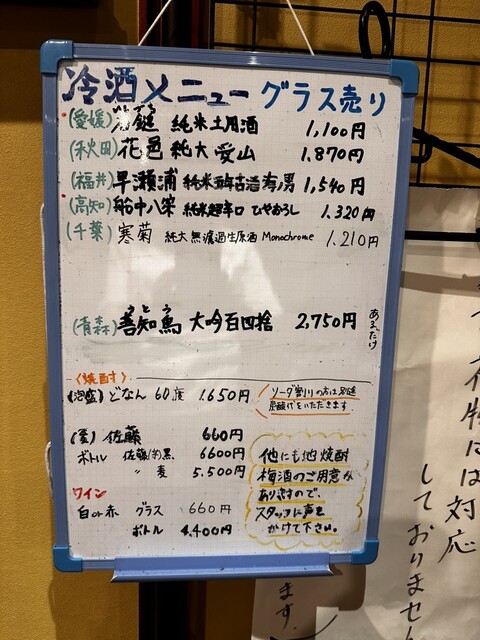 冷酒メニュー グラス売り
(愛媛) 純米土用酒 1,100円
(秋田) 花邑 純大 愛山 1,870円
(福井) 早瀬浦 純米五年古酒 寿男 1,540円
(高知) 船中八策 純米超辛口 ひやおろし 1,320円
(千葉) 寒菊 純大 無濾過生原酒 Monochrome 1,210円
(青森) 善知鳥 大吟百四捨 2,750円 あるだけ
うとう
〈焼酎〉
(泡盛) どなん 60度 1,650円
ソーダ割りの方は別途
炭酸代をいただきます
(麦) 佐藤 660円
ボトル 佐藤 黒 6600円
〃 麦 5,500円
他にも地焼酎
梅酒のご用意が
ありますので、
スタッフに声を
かけて下さい。
ワイン
白or赤 グラス 660円
ボトル 4,400円
は対応
しておりません
ます。